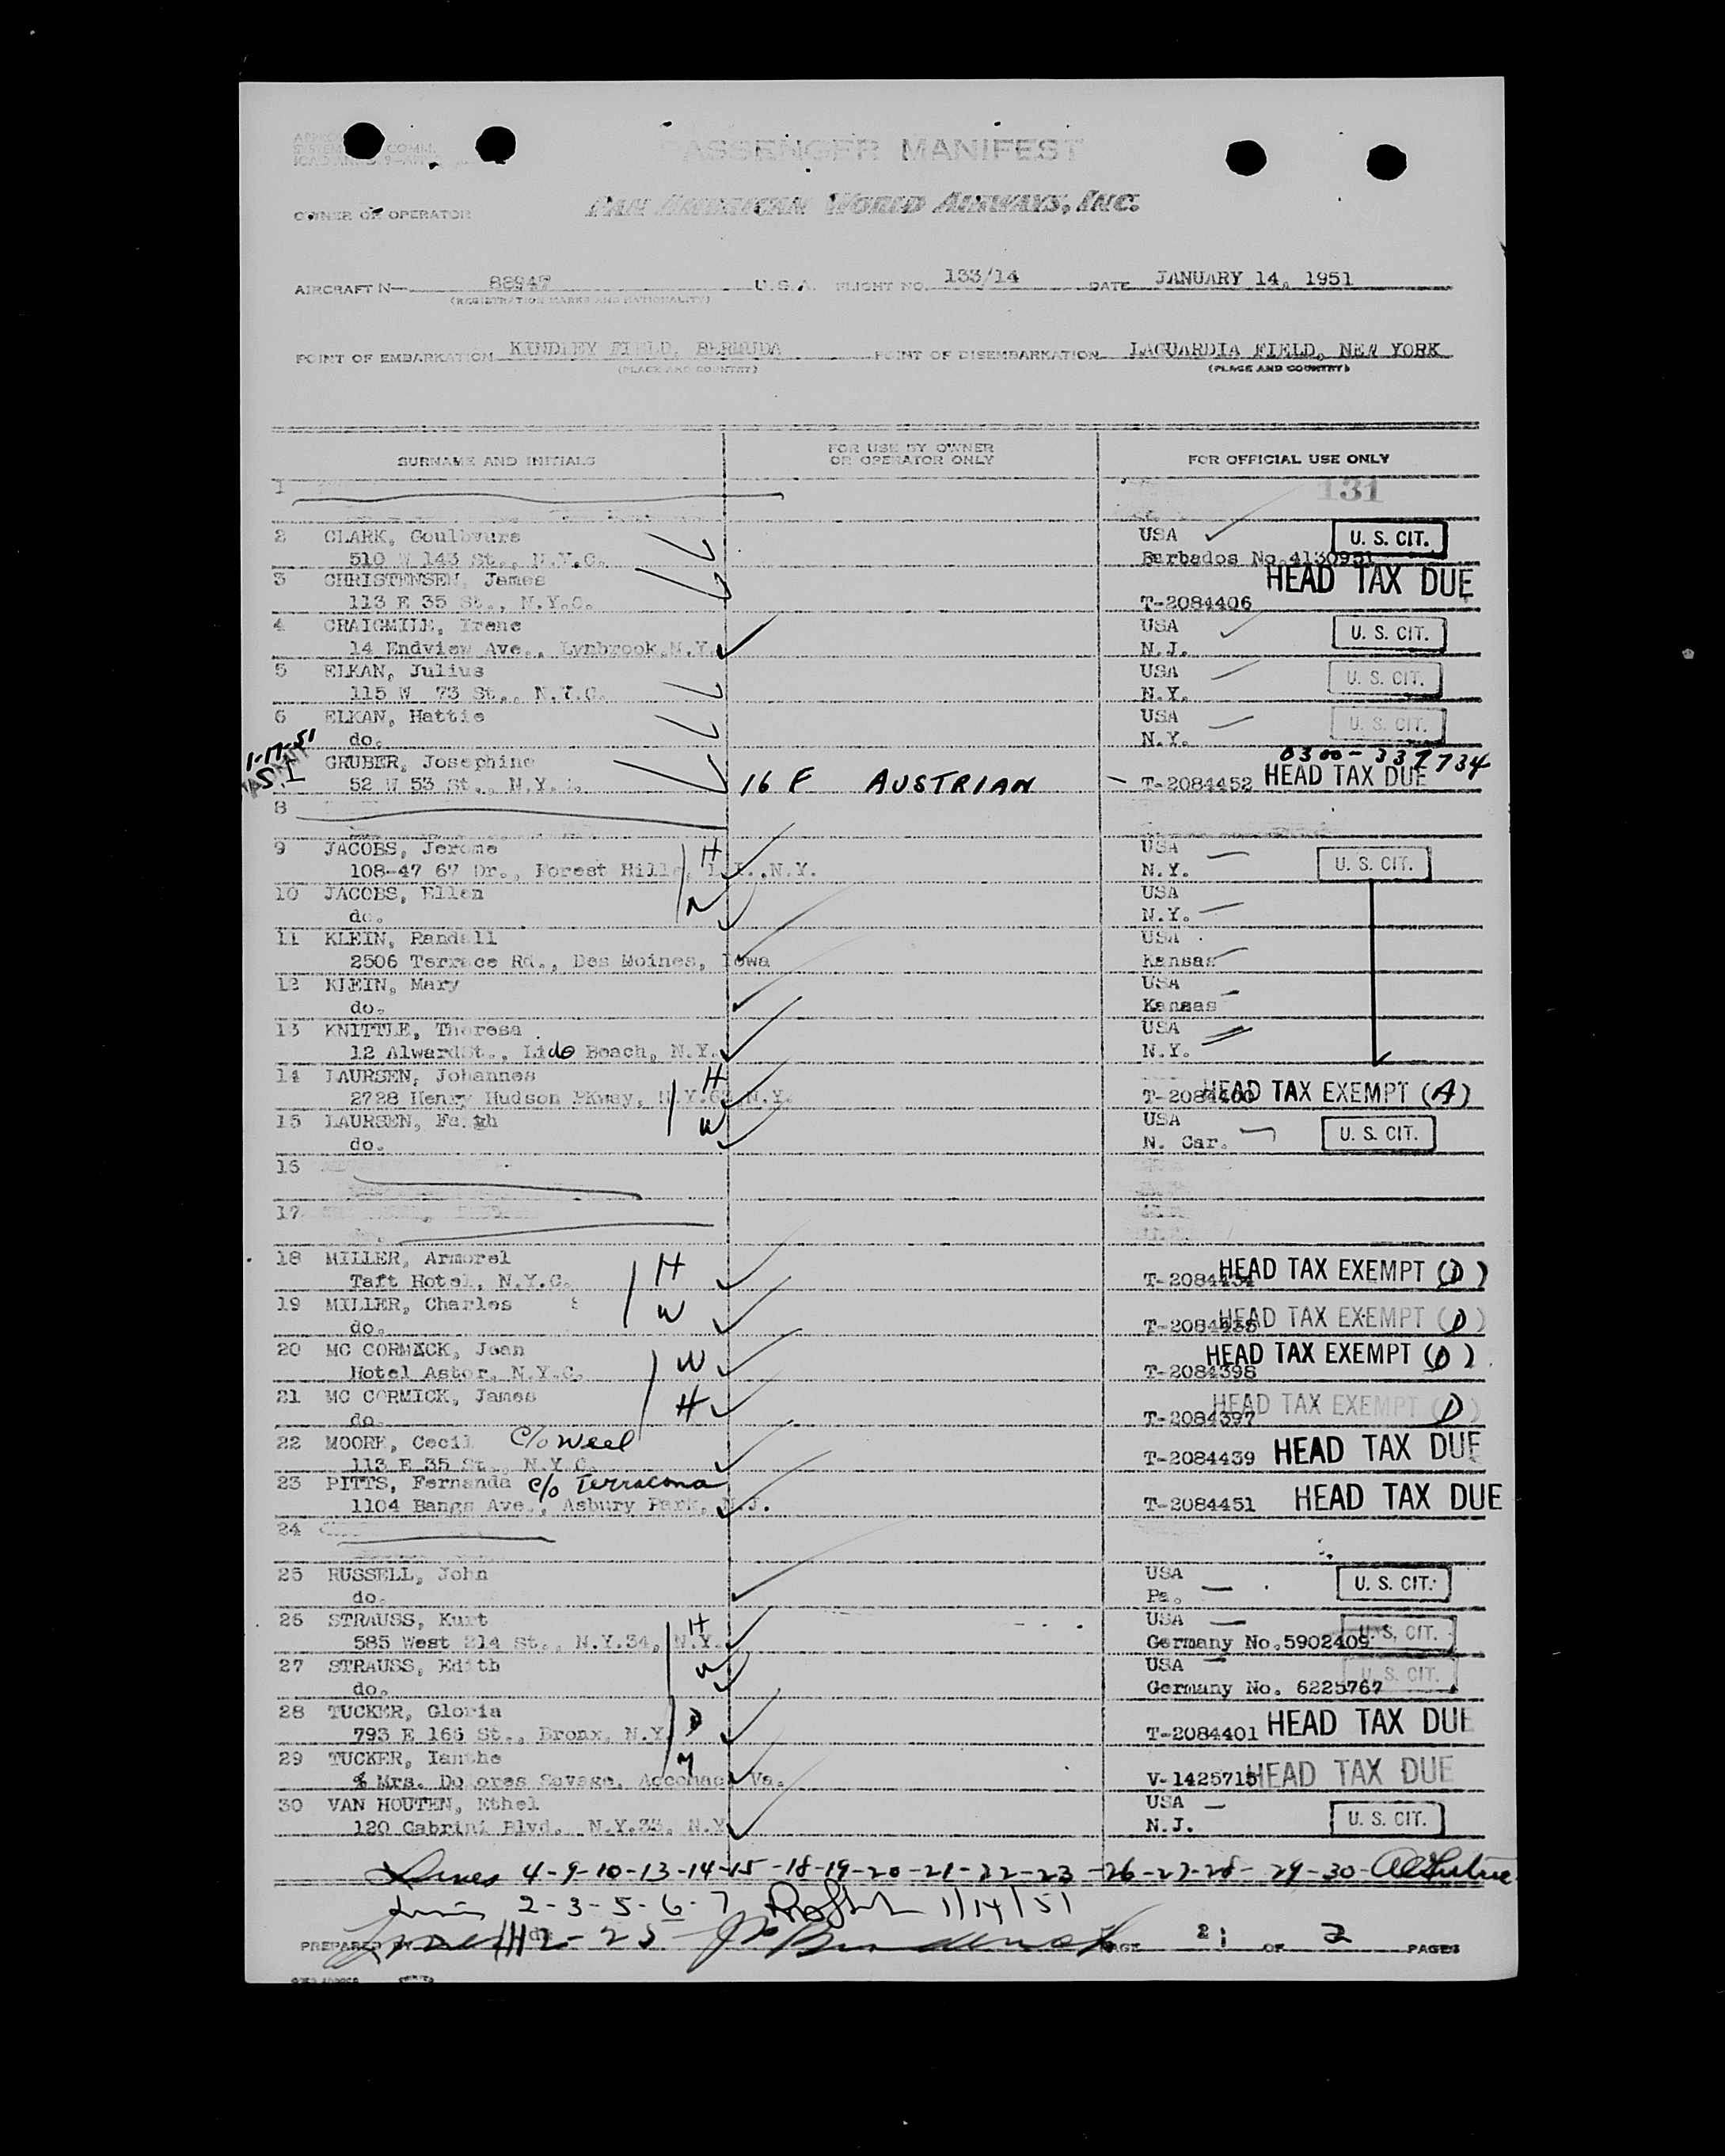 PASSENGER MANIFEST
OWNER OR OPERATOR PAN AMERICAN WORLD AIRWAYS, INC.
AIRCRAFT N— 88947 U.S.A. FLIGHT NO. 133/14 DATE JANUARY 14, 1951
(REGISTRATION MARKS AND NATIONALITY)
POINT OF EMBARKATION KINDLEY FIELD, BERMUDA POINT OF DISEMBARKATION LAGUARDIA FIELD, NEW YORK
(PLACE AND COUNTRY) (PLACE AND COUNTRY)
SURNAME AND INITIALS FOR USE BY OWNER OR OPERATOR ONLY FOR OFFICIAL USE ONLY
1 131
2 CLARK, USA U. S. CIT.
510 W 143 St., N.Y.C. Barbados No.4130951
3 CHRISTENSEN, James HEAD TAX DUE
113 E 35 St., N.Y.C. T-2084406
4 CRAIGMILE, Irene USA U. S. CIT.
14 Endview Ave., Lynbrook,N.Y. N.J.
5 ELKAN, Julius USA U. S. CIT.
115 W 73 St., N.Y.C. N.Y.
6 ELKAN, Hattie USA U. S. CIT.
do. N.Y.
1-17-51 GRUBER, Josephine 0300-337734
52 W 53 St., N.Y. 16 F AUSTRIAN T-2084452 HEAD TAX DUE
8
9 JACOBS, Jerome H USA U. S. CIT.
108-47 67 Dr., Forest Hills, L.I.,N.Y. N.Y.
10 JACOBS, Ellen USA
do. W N.Y.
11 KLEIN, Randall USA
2506 Terrace Rd., Des Moines, Iowa Kansas
12 KLEIN, Mary USA
do. Kansas
13 KNITTLE, Theresa USA
12 Alward St., Lido Beach, N.Y. N.Y.
14 LAURSEN, Johannes H HEAD TAX EXEMPT (A)
2728 Henry Hudson PKway, N.Y.63,N.Y. T-2084400
15 LAURSEN, W USA U. S. CIT.
do. N. Car.
16
17
18 MILLER, Armorel H HEAD TAX EXEMPT (D)
Taft Hotel, N.Y.C. T-2084434
19 MILLER, Charles W HEAD TAX EXEMPT (D)
do. T-2084435
20 MC CORMACK, Jean W HEAD TAX EXEMPT (D)
Hotel Astor, N.Y.C. T-2084398
21 MC CORMICK, James H HEAD TAX EXEMPT (D)
do. T-2084397
22 MOORE, Cecil C/o Weel
113 E 35 St., N.Y.C. T-2084439 HEAD TAX DUE
23 PITTS, Fernanda c/o Terracona
1104 Bangs Ave., Asbury Park, N.J. T-2084451 HEAD TAX DUE
24
25 RUSSELL, John USA U. S. CIT.
do. Pa.
26 STRAUSS, Kurt H USA U. S. CIT.
585 West 214 St., N.Y.34, N.Y. Germany No.5902409
27 STRAUSS, Edith W USA U. S. CIT.
do. Germany No. 6225767
28 TUCKER, Gloria D
793 E 166 St., Bronx, N.Y. T-2084401 HEAD TAX DUE
29 TUCKER, Ianthe M
% Mrs. Dolores Savage, Accomac, Va. V-1425715 HEAD TAX DUE
30 VAN HOUTEN, Ethel USA U. S. CIT.
120 Cabrini Blvd. N.Y.33, N.Y. N.J.
Lines 4-9-10-13-14-15-18-19-20-21-22-23-26-27-28-29-30-
2-3-5-6-7 1/14/51
PREPARED BY PAGE 2 OF 2 PAGES